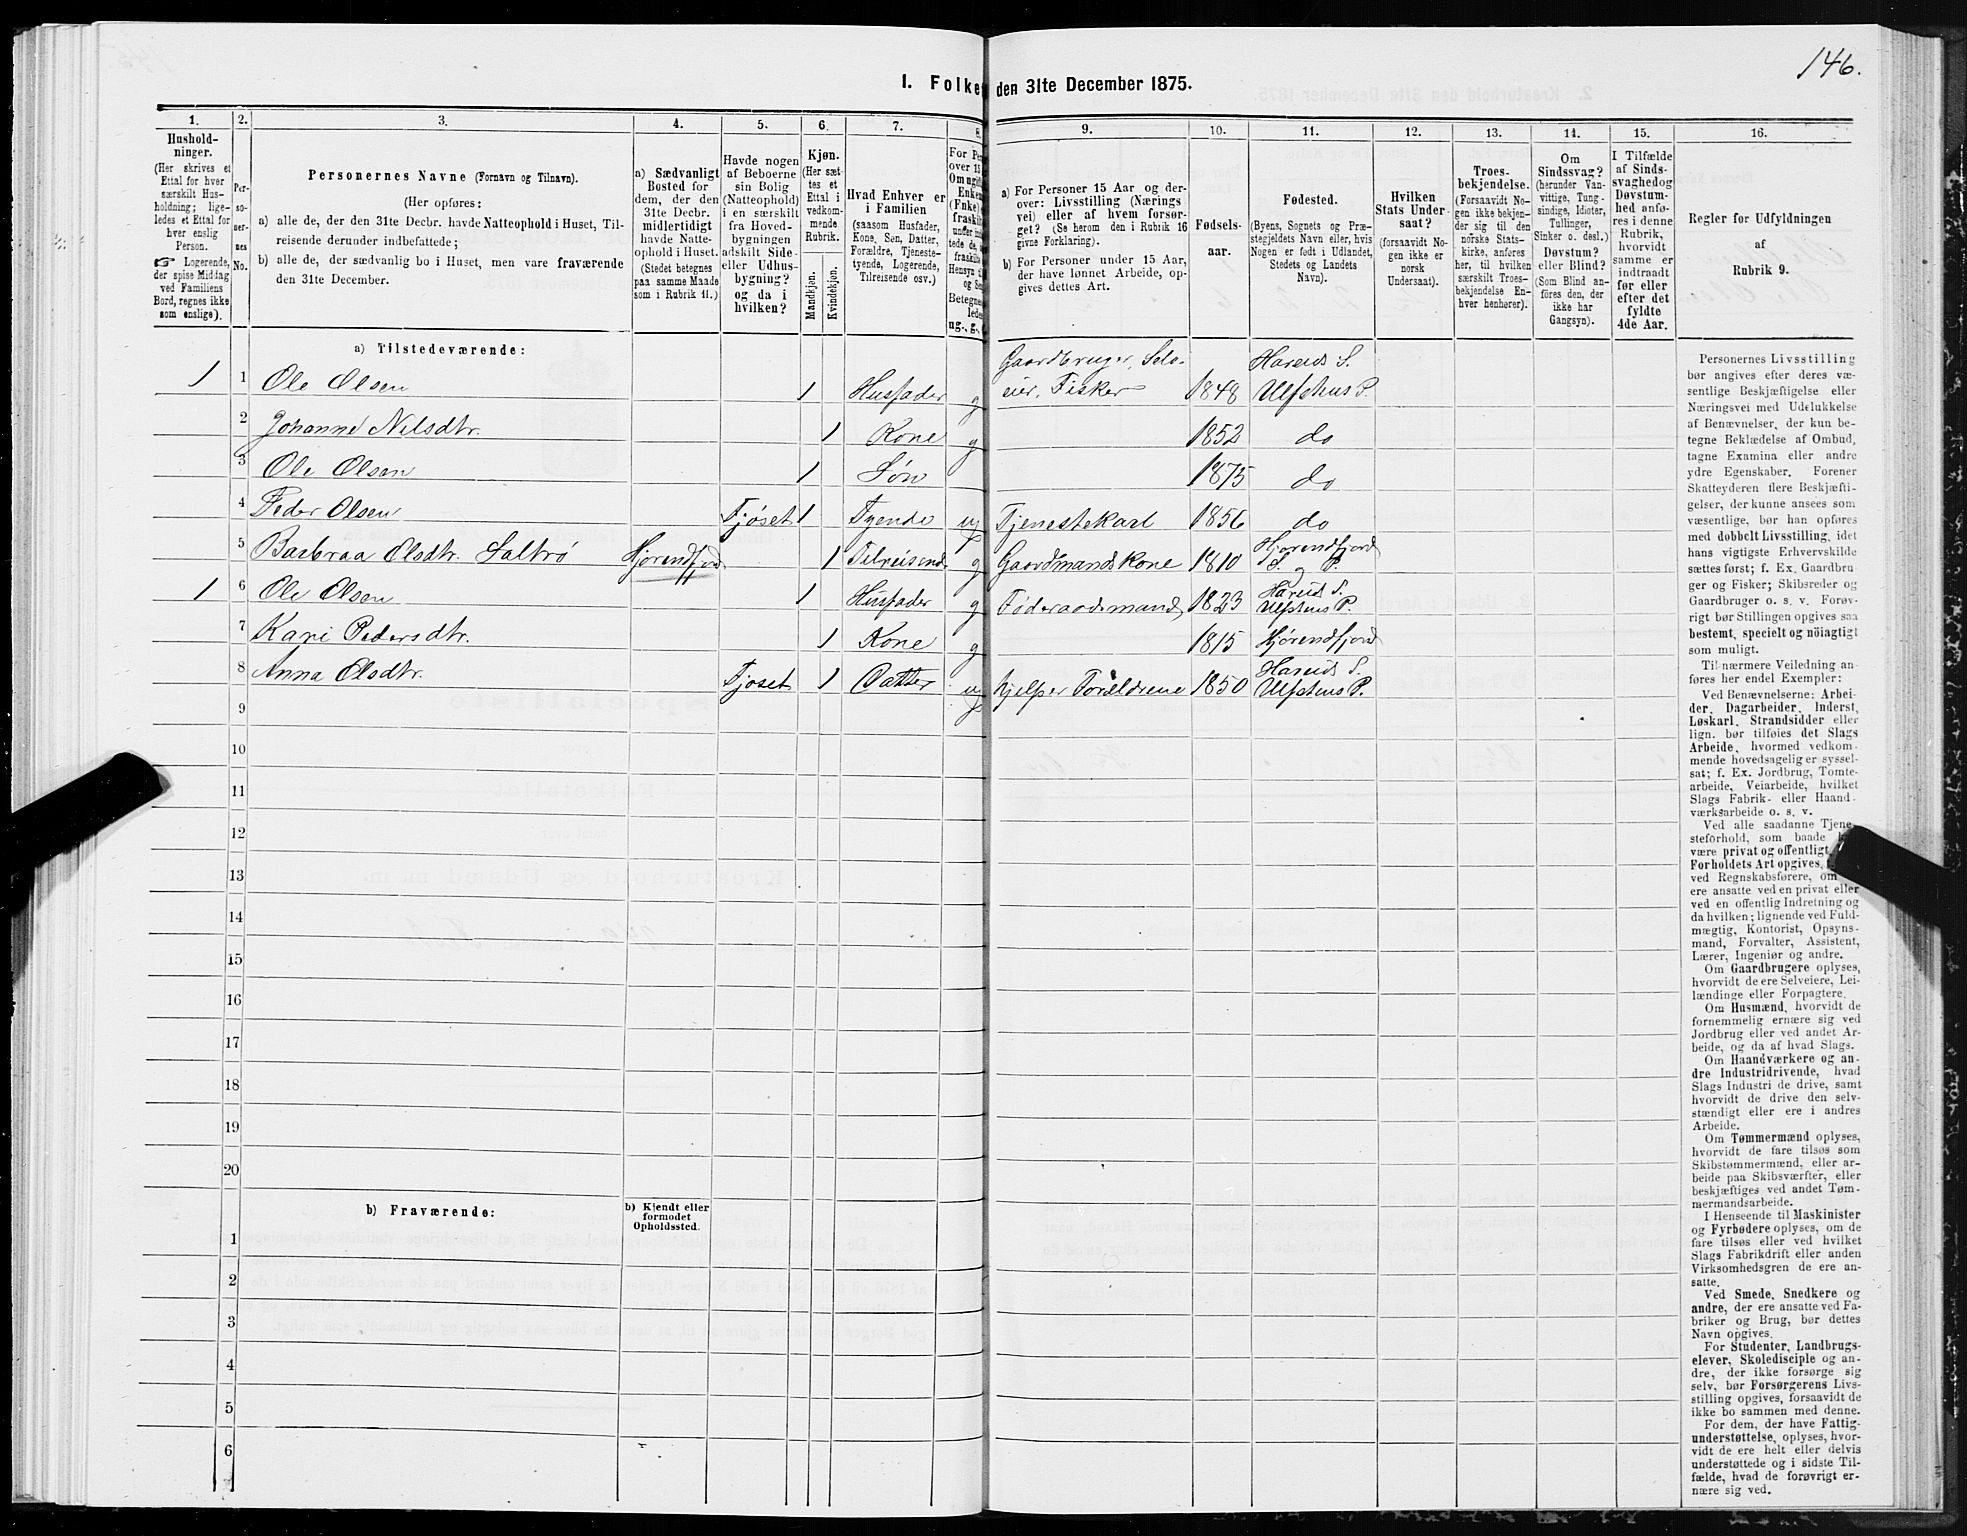 146.
I. Folket
den 31te December 1875.
1.
2.
3.
4.
5.
6.
7.
8.
9.
10.
11.
12.
13.
14.
15.
16.
Hushold-
ninger.
(Her skrives et
Ettal for hver
særskilt Hus-
holdning; lige-
ledes et Ettal for
hver enslig
Person.
☞ Logerende,
der spise Middag
ved Familiens
Bord, regnes ikke
som enslige).
Per-
so-
ner-
nes
No.
Personernes Navne (Fornavn og Tilnavn).
(Her opføres:
a) alle de, der den 31te Decbr. havde Natteophold i Huset, Til-
reisende derunder indbefattede;
b) alle de, der sædvanlig bo i Huset, men vare fraværende
den 31te December.
a) Sædvanligt
Bosted for
dem, der den
31te Decbr.
midlertidigt
havde Natte-
ophold i Huset.
(Stedet betegnes
paa samme Maade
som i Rubrik 11.)
Havde nogen
af Beboerne
sin Bolig
(Natteophold)
i en særskilt
fra Hoved-
bygningen
adskilt Side-
eller Udhus-
bygning?
og da i
hvilken?
Kjøn.
(Her sæt-
tes et
Ettal i
vedkom-
mende
Rubrik.
Mandkjøn.
Kvindekjøn.
Hvad Enhver er
i Familien
(saasom Husfader,
Kone, Søn, Datter,
Forældre, Tjeneste-
tyende, Logerende,
Tilreisende osv.)
For Pe
over 15
Om ugift
Enke
(Enke)
fraski
under
tede de,
fraskil
Hensyn
og Se
Betegne
ledes
ug., g.,
a) For Personer 15 Aar og der-
over: Livsstilling (Nærings
vei) eller af hvem forsør-
get? (Se herom den i Rubrik 16
givne Forklaring).
b) For Personer under 15 Aar,
der have lønnet Arbeide, op-
gives dettes Art.
Fødsels-
aar.
Fødested.
(Byens, Sognets og Præ-
stegjeldets Navn eller, hvis
Nogen er født i Udlandet,
Stedets og Landets
Navn).
Hvilken
Stats Under-
saat?
(forsaavidt No-
gen ikke er
norsk
Undersaat).
Troes-
bekjendelse.
(Forsaavidt No-
gen ikke bekjen-
der sig til den
norske Stats-
kirke, anføres
her, til hvilken
særskilt Troes-
bekjendelse En-
hver henhører).
Om
Sindssvag?
(herunder Van-
vittige, Tung-
sindige, Idioter,
Tullinger,
Sinker o. desl.)
Døvstum?
eller Blind?
(Som Blind an-
føres den, der
ikke har
Gangsyn).
I Tilfælde
af Sinds-
svaghed og
Døvstum-
hed anfø-
res i denne
Rubrik,
hvorvidt
samme er
indtraadt
før eller
efter det
fyldte
4de Aar.
Regler for Udfyldningen
af
Rubrik 9.
a) Tilstedeværende:
1 1 Ole Olsen 1 Husfader g Gaardbruger, Selv-
eier, Fisker 1848 Hareids S.
Ulfstens P.
2 Johanne Nilsdtr. 1 Kone g 1852 do
3 Ole Olsen 1 Søn 1875 do
4 Peder Olsen Fjøset 1 Tyende ug Tjenestekarl 1856 do
5 Barbraa Olsdtr. Saltrø Hjørendfjord 1 Tilreisende g Gaardmandskone 1810 Hjørendfjord
S. og P.
1 6 Ole Olsen 1 Husfader g Føderaadsmand 1823 Hareid S.
Ulfstens P.
7 Kari Pedersdtr. 1 Kone g 1815 Hjørendfjord
8 Anna Olsdtr. Fjøset 1 Datter ug hjelper Forældrene 1850 Hareids S.
Ulfstens P.
9
10
11
12
13
14
15
16
17
18
19
20
b) Fraværende:
b) Kjendt eller
formodet
Opholdssted.
1
2
3
4
5
6
Personernes Livsstilling
bør angives efter deres væ-
sentlige Beskjæftigelse eller
Næringsvei med Udelukkelse
af Benævnelser, der kun be-
tegne Beklædelse af Ombud,
tagne Examina eller andre
ydre Egenskaber. Forener
Skatteyderen flere Beskjæfti-
gelser, der kunne ansees som
væsentlige, bør han opføres
med dobbelt Livsstilling, idet
hans vigtigste Erhvervskilde
sættes først; f. Ex. Gaardbru-
ger og Fisker; Skibsreder og
Gaardbruger o. s. v. Forøv-
rigt bør Stillingen opgives saa
bestemt, specielt og nøiagtigt
som muligt.
Til nærmere Veiledning an-
føres her endel Exempler:
Ved Benævnelserne: Arbei-
der, Dagarbeider, Inderst,
Løskarl, Strandsidder eller
lign. bør tilføies det Slags
Arbeide, hvormed vedkom-
mende hovedsagelig er syssel-
sat; f. Ex. Jordbrug, Tomte-
arbeide, Veiarbeide, hvilket
Slags Fabrik- eller Haand-
værksarbeide o. s. v.
Ved alle saadanne Tjene-
steforhold, som baade
være privat og offentligt,
Forholdets Art opgives,
ved Regnskabsførere, om
ere ansatte ved en privat eller
ved en offentlig Indretning og
da hvilken; lignende ved Fuld-
mægtig, Kontorist, Opsyns-
mand, Forvalter, Assistent,
Lærer, Ingeniør og andre.
Om Gaardbrugere oplyses,
hvorvidt de ere Selveiere, Lei-
lændinge eller Forpagtere.
Om Husmænd, hvorvidt de
fornemmelig ernære sig ved
Jordbrug eller ved andet Ar-
beide, og da af hvad Slags.
Om Haandværkere og an-
dre Industridrivende, hvad
Slags Industri de drive, samt
hvorvidt de drive den selv-
stændigt eller ere i andres
Arbeide.
Om Tømmermænd oplyses,
hvorvidt de fare tilsøs som
Skibstømmermænd, eller ar-
beide paa Skibsværfter, eller
beskjæftiges ved andet Tøm-
mermandsarbeide.
I Henseende til Maskinister
og Fyrbødere oplyses, om de
fare tilsøs eller ved hvilket
Slags Fabrikdrift eller anden
Virksomhedsgren de ere an-
satte.
Ved Smede, Snedkere og
andre, der ere ansatte ved Fa-
briker og Brug, bør dettes
Navn opgives.
For Studenter, Landbrugs-
elever, Skoledisciple og an-
dre, der ikke forsørge sig
selv, bør Forsørgerens Livs-
stilling opgives, forsaavidt de
ikke bo sammen med denne.
For dem, der have Fattig-
understøttelse, oplyses, hvor-
vidt de ere helt eller delvis
understøttede og i sidste Til-
fælde, hvad de forøvrigt er-
nære sig ved.